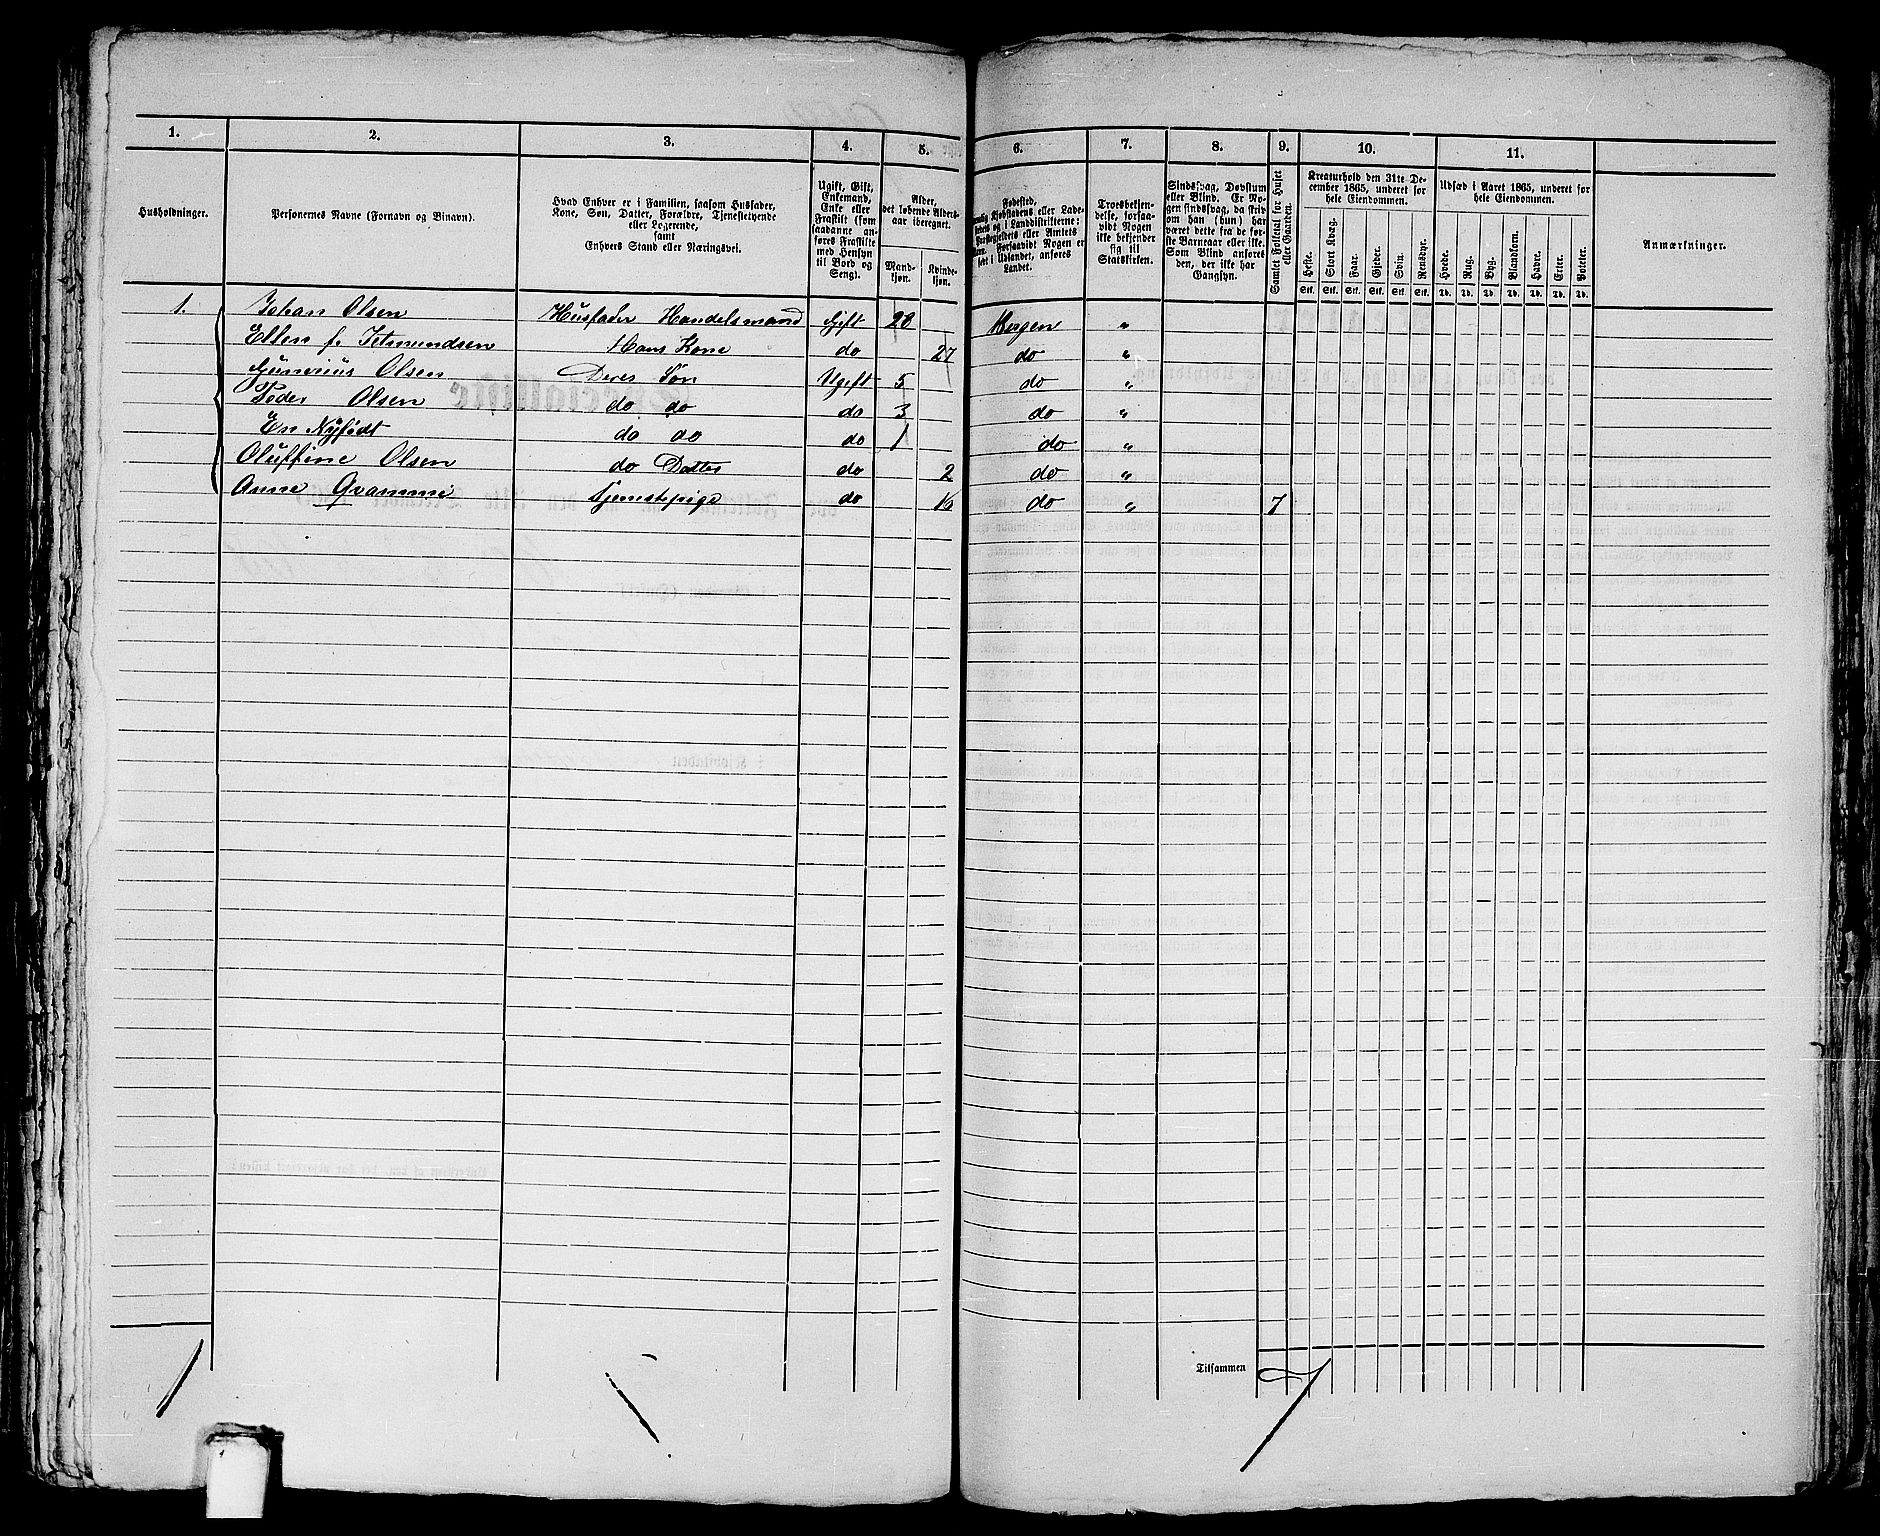 1. 2. 3. 4. 5. 6. 7. 8. 9. 10. 11.
Husholdninger.
Personernes Navne (Fornavn og Binavn).
Hvad Enhver er i Familien, saasom Husfader,
Kone, Søn, Datter, Forældre, Tjenestetyende
eller Logerende,
samt
Enhvers Stand eller Næringsvei.
Ugift, Gift,
Enkemand,
Enke eller
Fraskilt (som
saadanne an-
føres Fraskilte
med Hensyn
til Bord og
Seng).
Alder,
det løbende Alders-
aar iberegnet.
Mand-
kjøn.
Kvinde-
kjøn.
Fødested,
Kjøbstadens eller Lade-
og i Landdistrikterne:
Præstegjeldets eller Amtets
Navn.
Forsaavidt Nogen er
født i Udlandet, anføres
Landet.
Troesbekjen-
delse, forsaa-
vidt Nogen
ikke bekjender
sig til
Statskirken.
Sindssvag, Døvstum
eller Blind. Er No-
gen sindssvag, da hvor-
vidt han (hun) har
været dette fra de før-
ste Barneaar eller ikke.
Som Blind anføres
den, der ikke har
Gangsyn.
Samlet Folketal for Huset
eller Gaarden.
Kreaturhold den 31te De-
cember 1865, underet for
hele Eiendommen.
Heste. Stort Kvæg. Faar. Gjeder. Svin. Rensdyr.
Stk. Stk. Stk. Stk. Stk. Stk.
Udsæd i Aaret 1865, underet for
hele Eiendommen.
Hvede. Rug. Byg. Blandkorn. Havre. Erter. Poteter.
Td. Td. Td. Td. Td. Td. Td.
Anmærkninger.
1. Johan Olsen Husfader Handelsmand Gift 28 Bergen "
Ellen f. Hans Kone do 27 do "
Gunerius Olsen Deres Søn Ugift 5 do "
Peder Olsen do do do 3 do "
En Nyfødt do do do 1 do "
Oluffine Olsen do Datter do 2 do "
Anne Qvamme Tjenestepige do 16 do " 7
Tilsammen 7